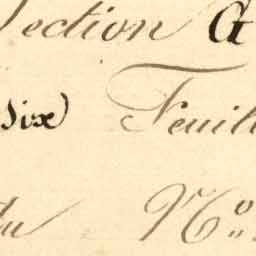 Section G
six Feuill
du No